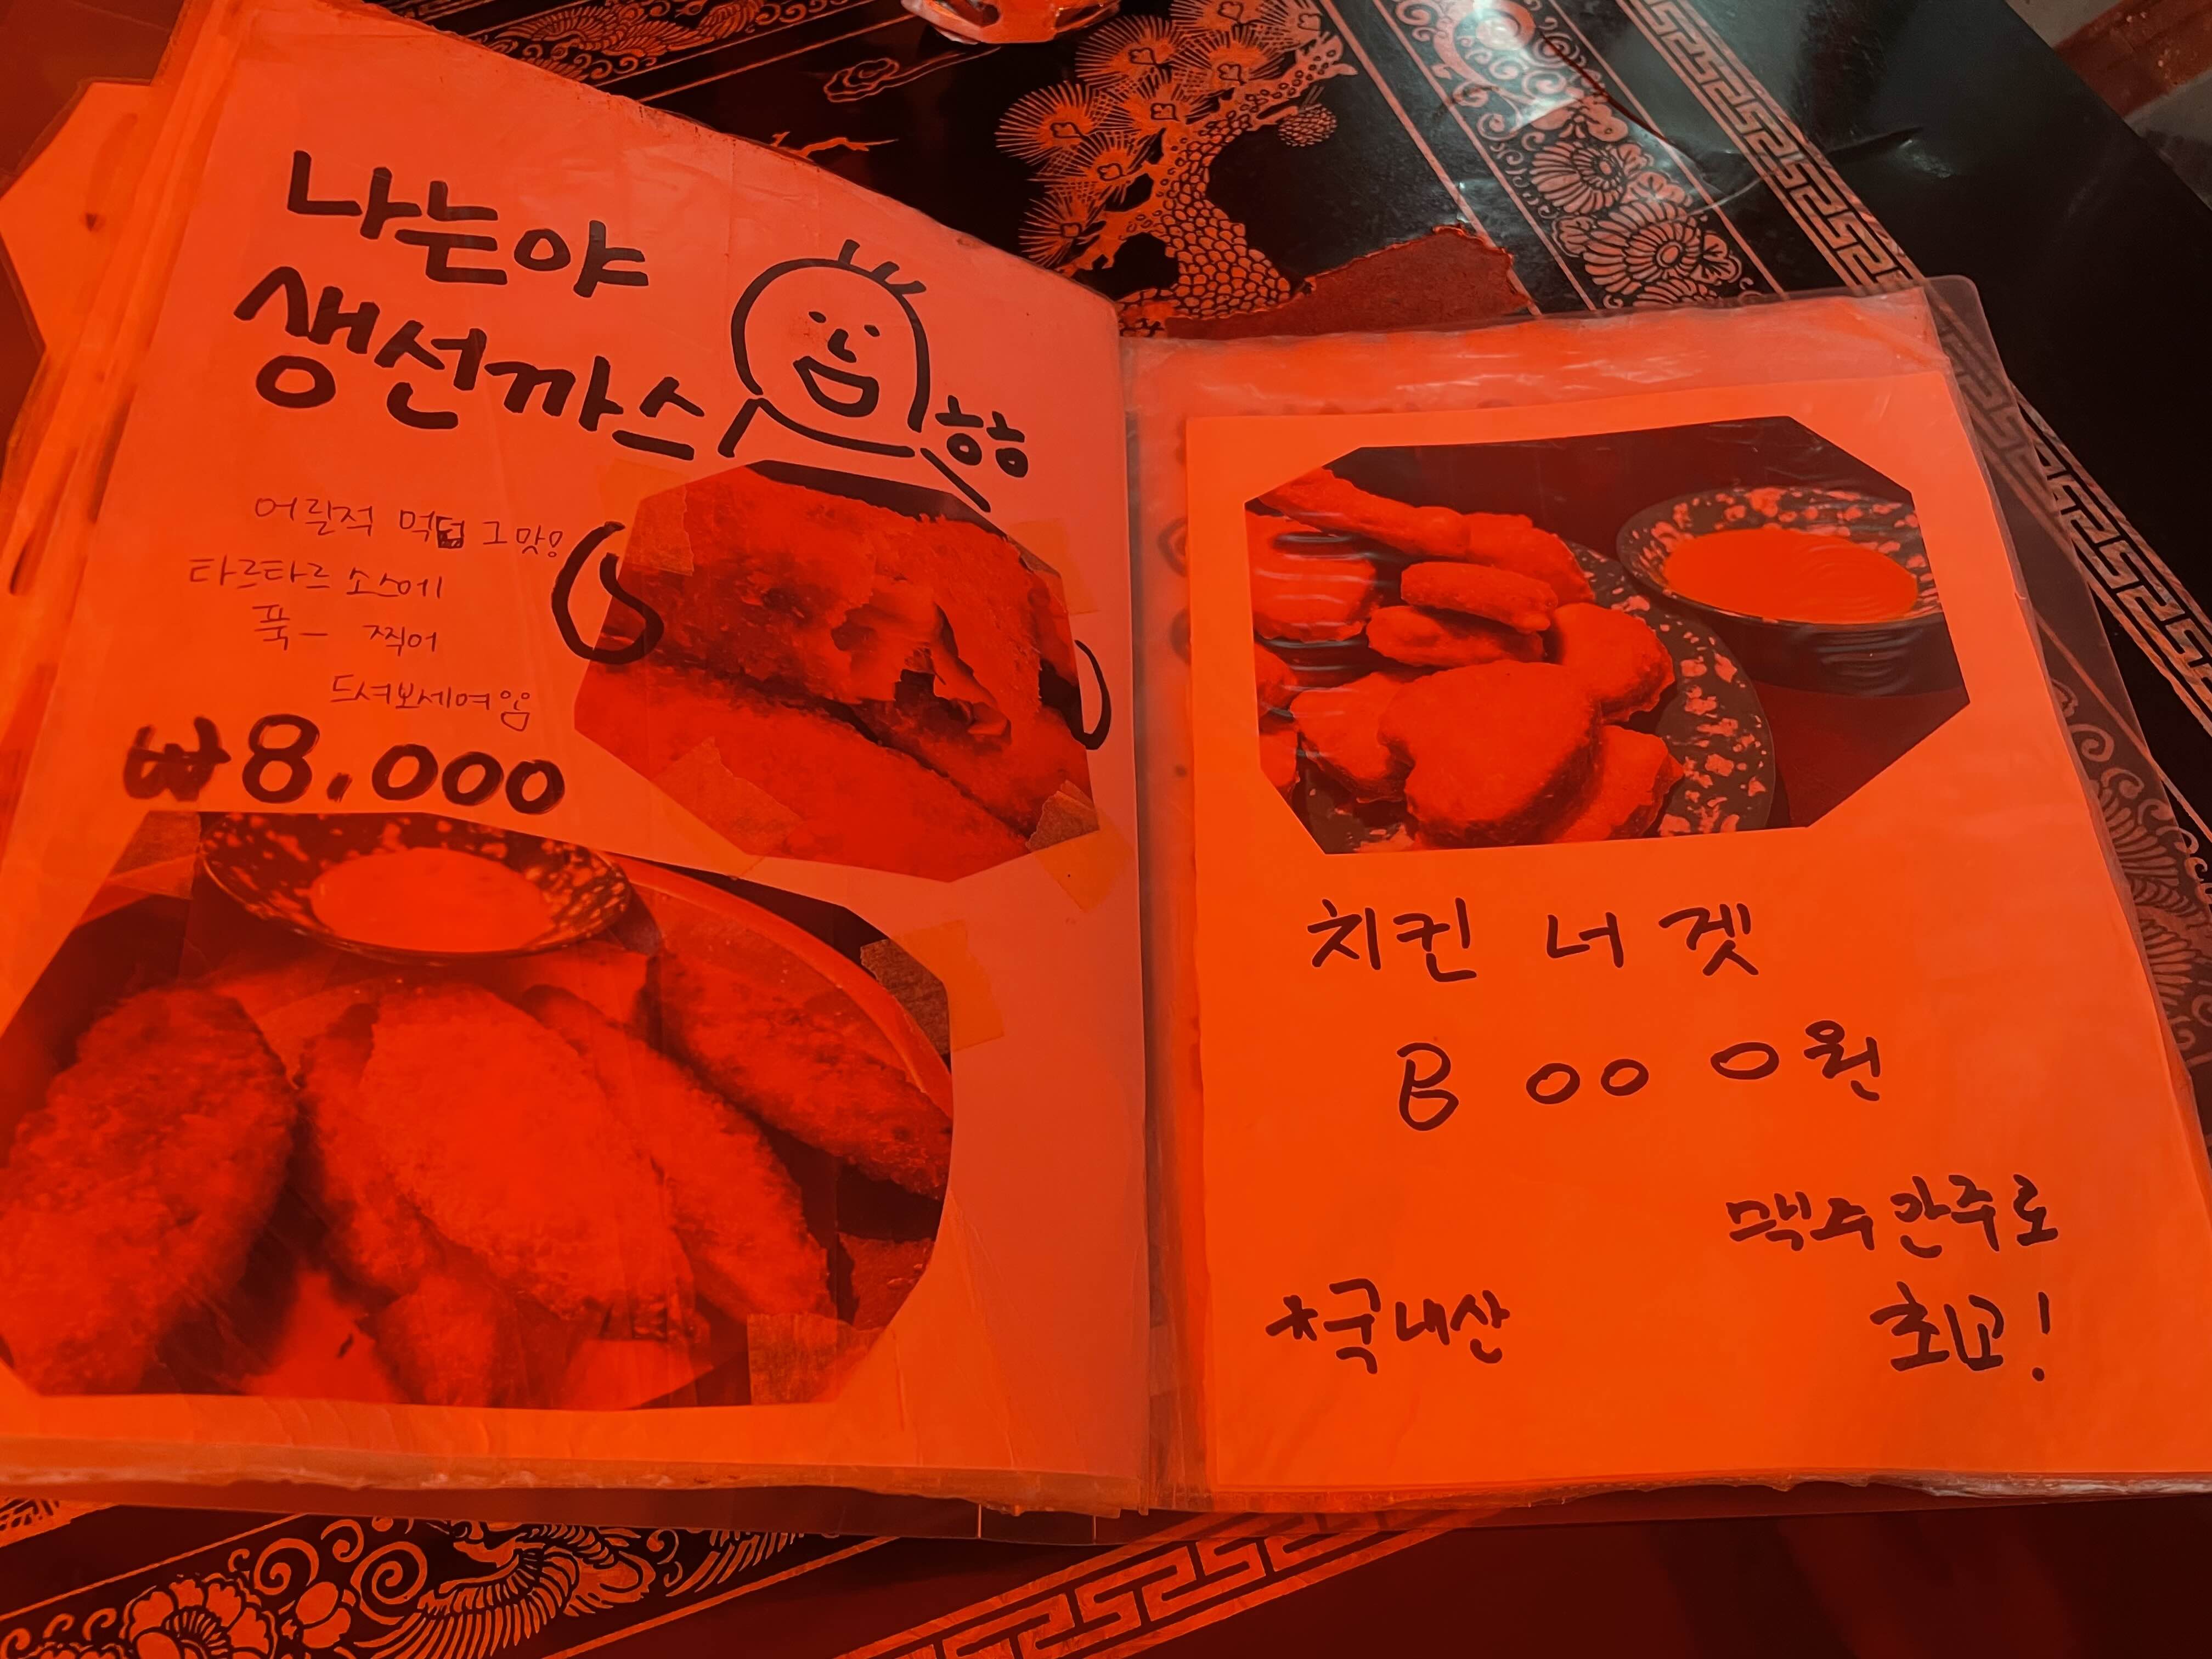 나는야
생선까스
핳핳
어릴적 먹던 그맛!
타르타르 소스에
푹— 찍어
드셔보세여
₩8,000
치킨 너겟
8000원
맥주안주로
최고!
*국내산